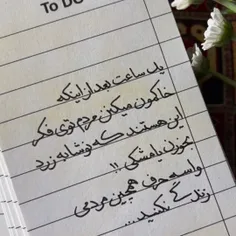 To DO
یک ساعت بعد از اینکه
خاکمون میکنن مردم توی فکر
این هستند که نوشابه زرد
بخورن یا مشکی!!
واسه حرف همچین مردمی
زندگی نکنید...